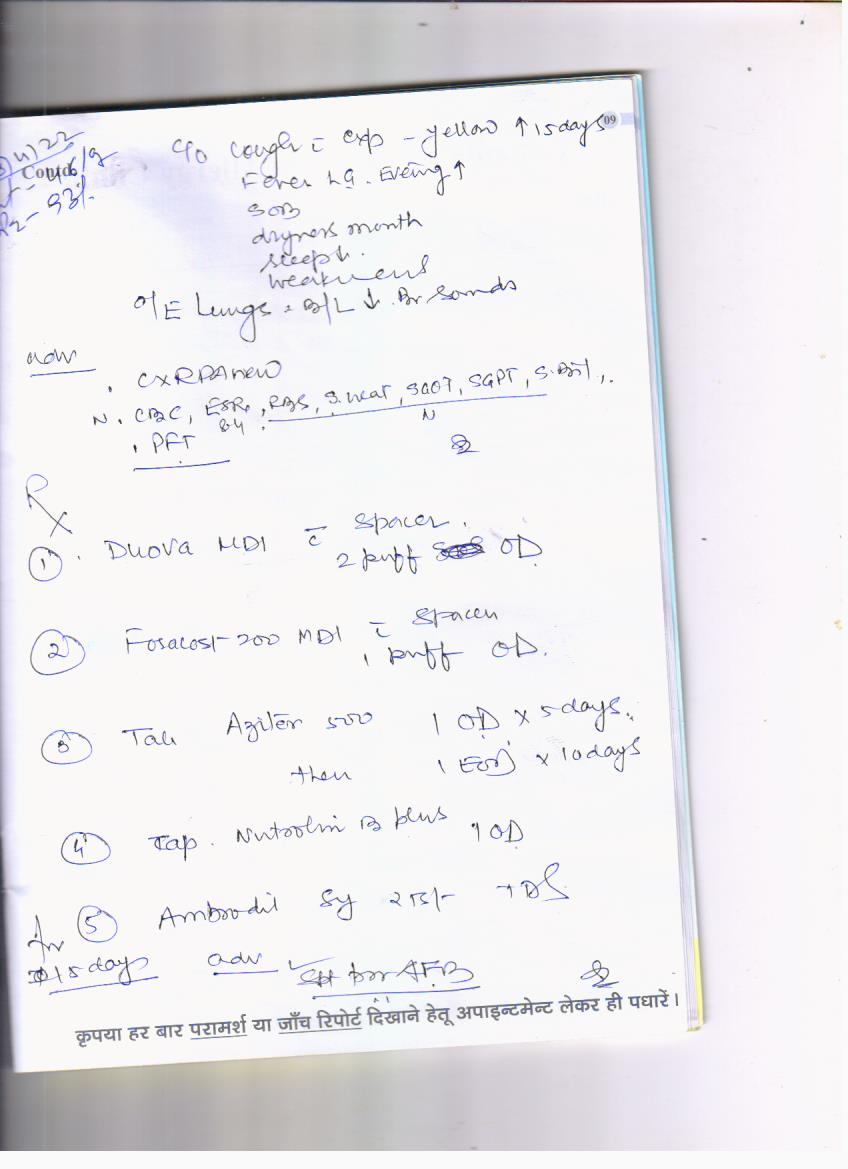 09
4/22
Contd
46 kg.
93%.
C/O Cough c̄ exp - yellow ↑ 15 days
Fever LG. Evening ↑
SOB
dryness mouth
sleep ↓.
weakness
O/E Lungs = B/L ↓. Br Sounds
adv
. CXR PA view
N. CBC, ESR, RBS, S. creat, SGOT, SGPT, S. Bil,.
84 N
. PFT
Rx
1. Duova MDI c̄ Spacer.
2 puff OD
2 Foracort-200 MDI c̄ Spacer
1 puff OD.
3 Tab Azitér 500 1 OD x 5 days.
then 1 EOD x 10 days
4 Cap. Nutrolin B plus 1 OD
5 Ambrodil Sy 2 TDS
for 15 days adv for AFB
कृपया हर बार परामर्श या जाँच रिपोर्ट दिखाने हेतू अपाइन्टमेन्ट लेकर ही पधारें।